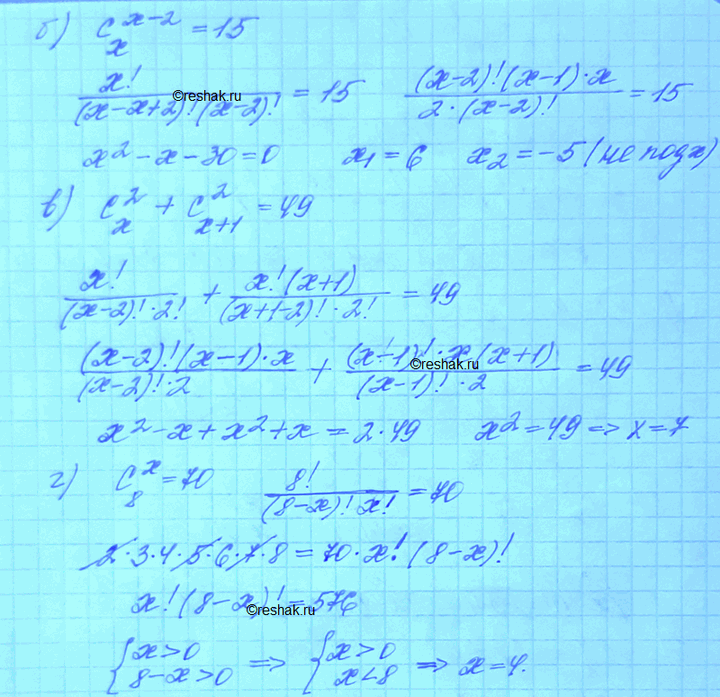 б) C_x^{x-2} = 15
x! / ((x-x+2)! (x-2)!) = 15     (x-2)! (x-1)·x / (2·(x-2)!) = 15
©reshak.ru
x² - x - 30 = 0     x₁ = 6     x₂ = -5 (не подх)
в) C_x^2 + C_{x+1}^2 = 49
x! / ((x-2)!·2!) + x! (x+1) / ((x+1-2)!·2!) = 49
(x-2)! (x-1)·x / ((x-2)!·2) + (x-1)!·x (x+1) / ((x-1)!·2) = 49
©reshak.ru
x² - x + x² + x = 2·49     x² = 49 => x = 7
г) C_8^x = 70     8! / ((8-x)! x!) = 70
2·3·4·5·6·7·8 = 70·x! (8-x)!
x! (8-x)! = 576
©reshak.ru
{ x>0     =>     { x>0     =>     x = 4.
{ 8-x>0          { x<8